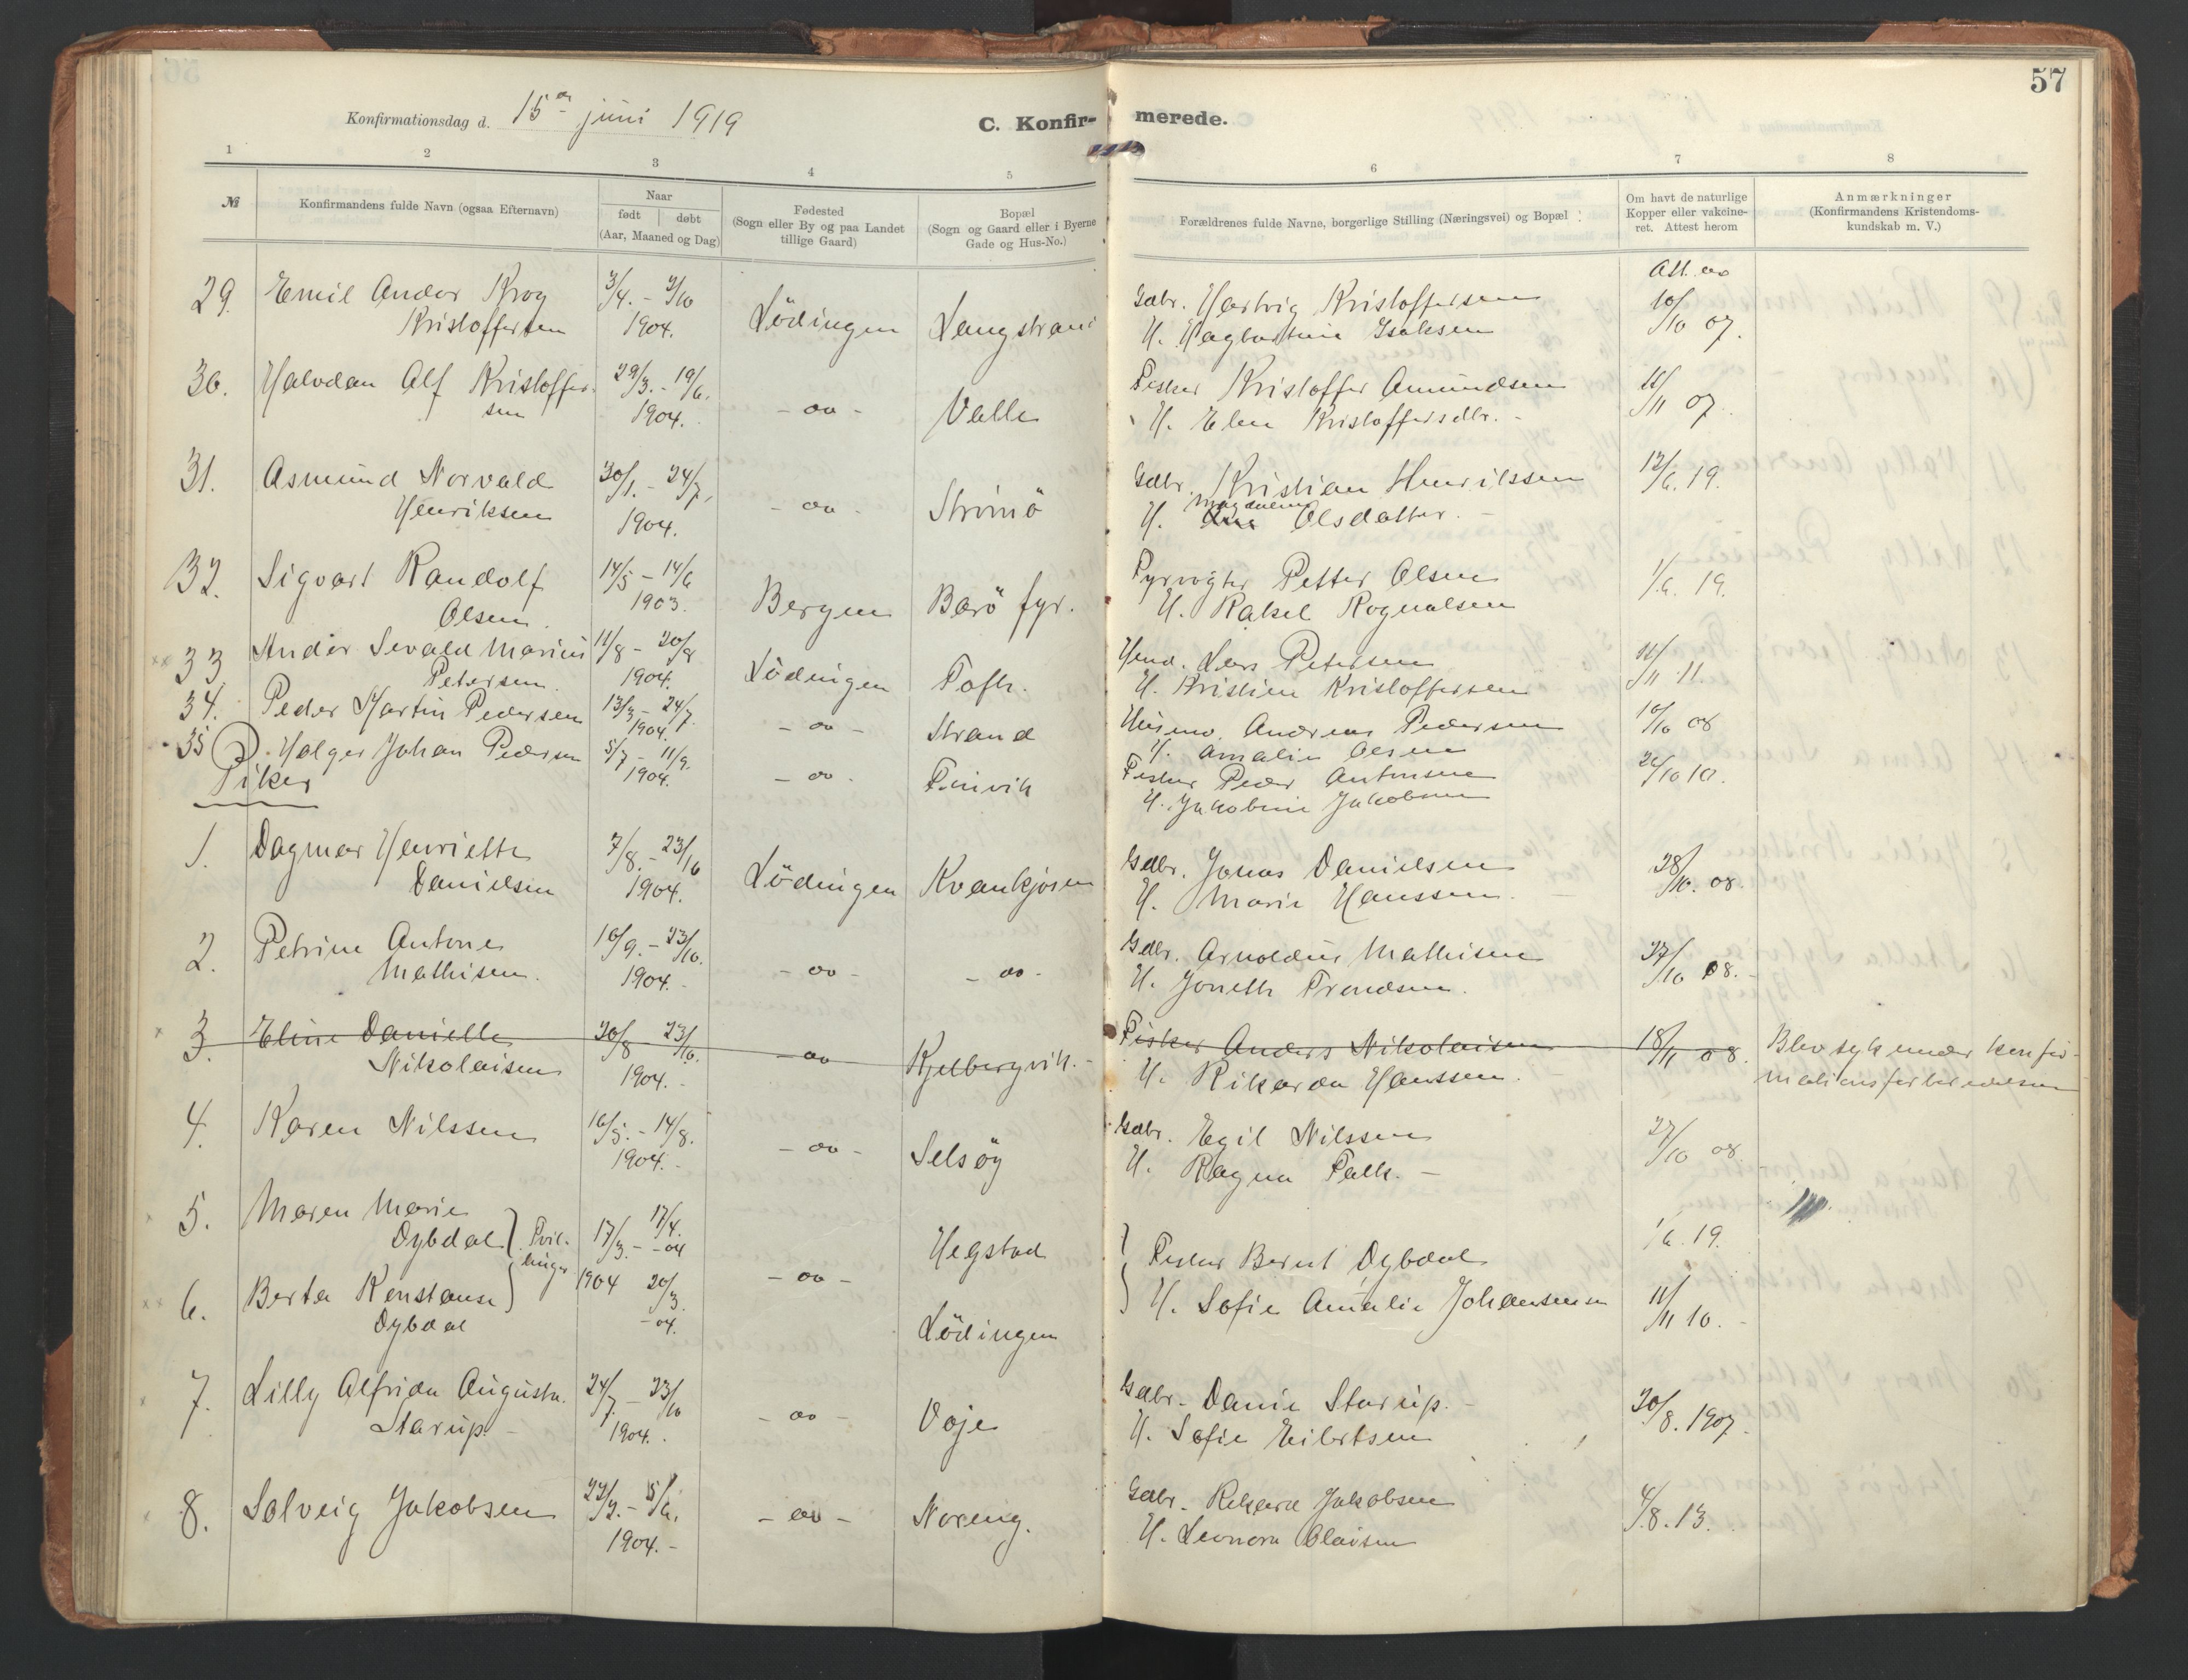 57
Konfirmationsdag d. 15de juni 1919
C. Konfir- merede.
1 2 3 4 5 6 7 8
№
Konfirmandens fulde Navn (ogsaa Efternavn)
Naar
født | døbt
(Aar, Maaned og Dag)
Fødested
(Sogn eller By og paa Landet
tillige Gaard)
Bopæl
(Sogn og Gaard eller i Byerne
Gade og Hus-No.)
Forældrenes fulde Navne, borgerlige Stilling (Næringsvei) og Bopæl
Om havt de naturlige
Kopper eller vakcine-
ret. Attest herom
Anmærkninger
(Konfirmandens Kristendoms-
kundskab m. V.)
Att. av
29. Emil Andor Krog 3/4. - 9/10 Lödingen Langstrand Gdbr. Hartvig Kristoffersen 10/10 07.
Kristoffersen 1904. H. Hagbartine Isaksen
30. Halvdan Alf Kristoffer- 29/3. - 19/6. - oo - Valle Fisker Kristoffer Amundsen 11/11 07.
sen 1904. H. Elen Kristoffersdtr. -
31. Asmund Norvald 30/1. - 24/7. - oo - Strömö Gdbr. Kristian Henrikssen 12/6. 19.
Henriksen 1904. H. Magdalena Olsdatter. -
32. Sigvart Randolf 14/5 - 14/6 Bergen Barö fyr. Fyrvogter Petter Olsen 1/6. 19.
Olsen. 1903. H. Rakel Rognalsen
33. Andor Sevald Marius 11/8 - 20/8 Lödingen Toft. Husmd. Lars Petersen 11/11 11.
Petersen. 1904. H. Kristine Kristoffersen
34. Peder Martin Pedersen 13/3 - 24/7. - oo - Strand Husmd. Andreas Pedersen 10/10 08
1904. H. Amalie Olsen
35. Holger Johan Pedersen 5/7 - 11/9. - oo - Finvik Fisker Peder Antonsen 26/10 10.
1904. H. Jakobine Jakobsen
Piker
1. Dagmar Henriette 7/8. - 23/10 Lödingen Kvankjosen Gdbr. Jonas Danielsen 28/10. 08.
Danielsen 1904. H. Marie Hanssen.
2. Petrine Antone 10/9. - 23/10. - oo - - oo - Gdbr. Arnoldus Mathisen 27/10 08. -
Mathisen. 1904. - H. Joneth Trondsen.
3. Eline Danielle 30/8 23/10. - oo Kjelbergvik. - Fisker Anders Nikolaisen 18/11 08. Blev syk under konfir-
Nikolaisen 1904. - H. Rikarda Hanssen. mationsforberedelsen
4. Karen Nilssen 16/5. - 14/8. - oo - Selsöy Gdbr. Egil Nilssen 27/10 08.
1904. - H. Ragna Falk. -
5. Maren Marie 17/4. Hegstad 1/6. 19.
Dybdal } Tvil- 17/3. - - 04 Fisker Bernt Dybdal
linger
6. Berta Konstanse 1904 20/3. - oo - H. Sofie Amalie Johansen 11/11 10. -
Dybdal - 04. Lödingen
7. Lilly Alfrida Augusta. 24/7. - 23/10 - oo - Voje Gdbr. Danie Starup. - 30/8. 1907.
Starup. - 1904. H. Sofie Eilertsen
8. Solveig Jakobsen 22/3. - 5/6. - oo - Noreng. Gdbr. Rikard Jakobsen 4/8. 13.
1904. - H. Leonora Olaisen